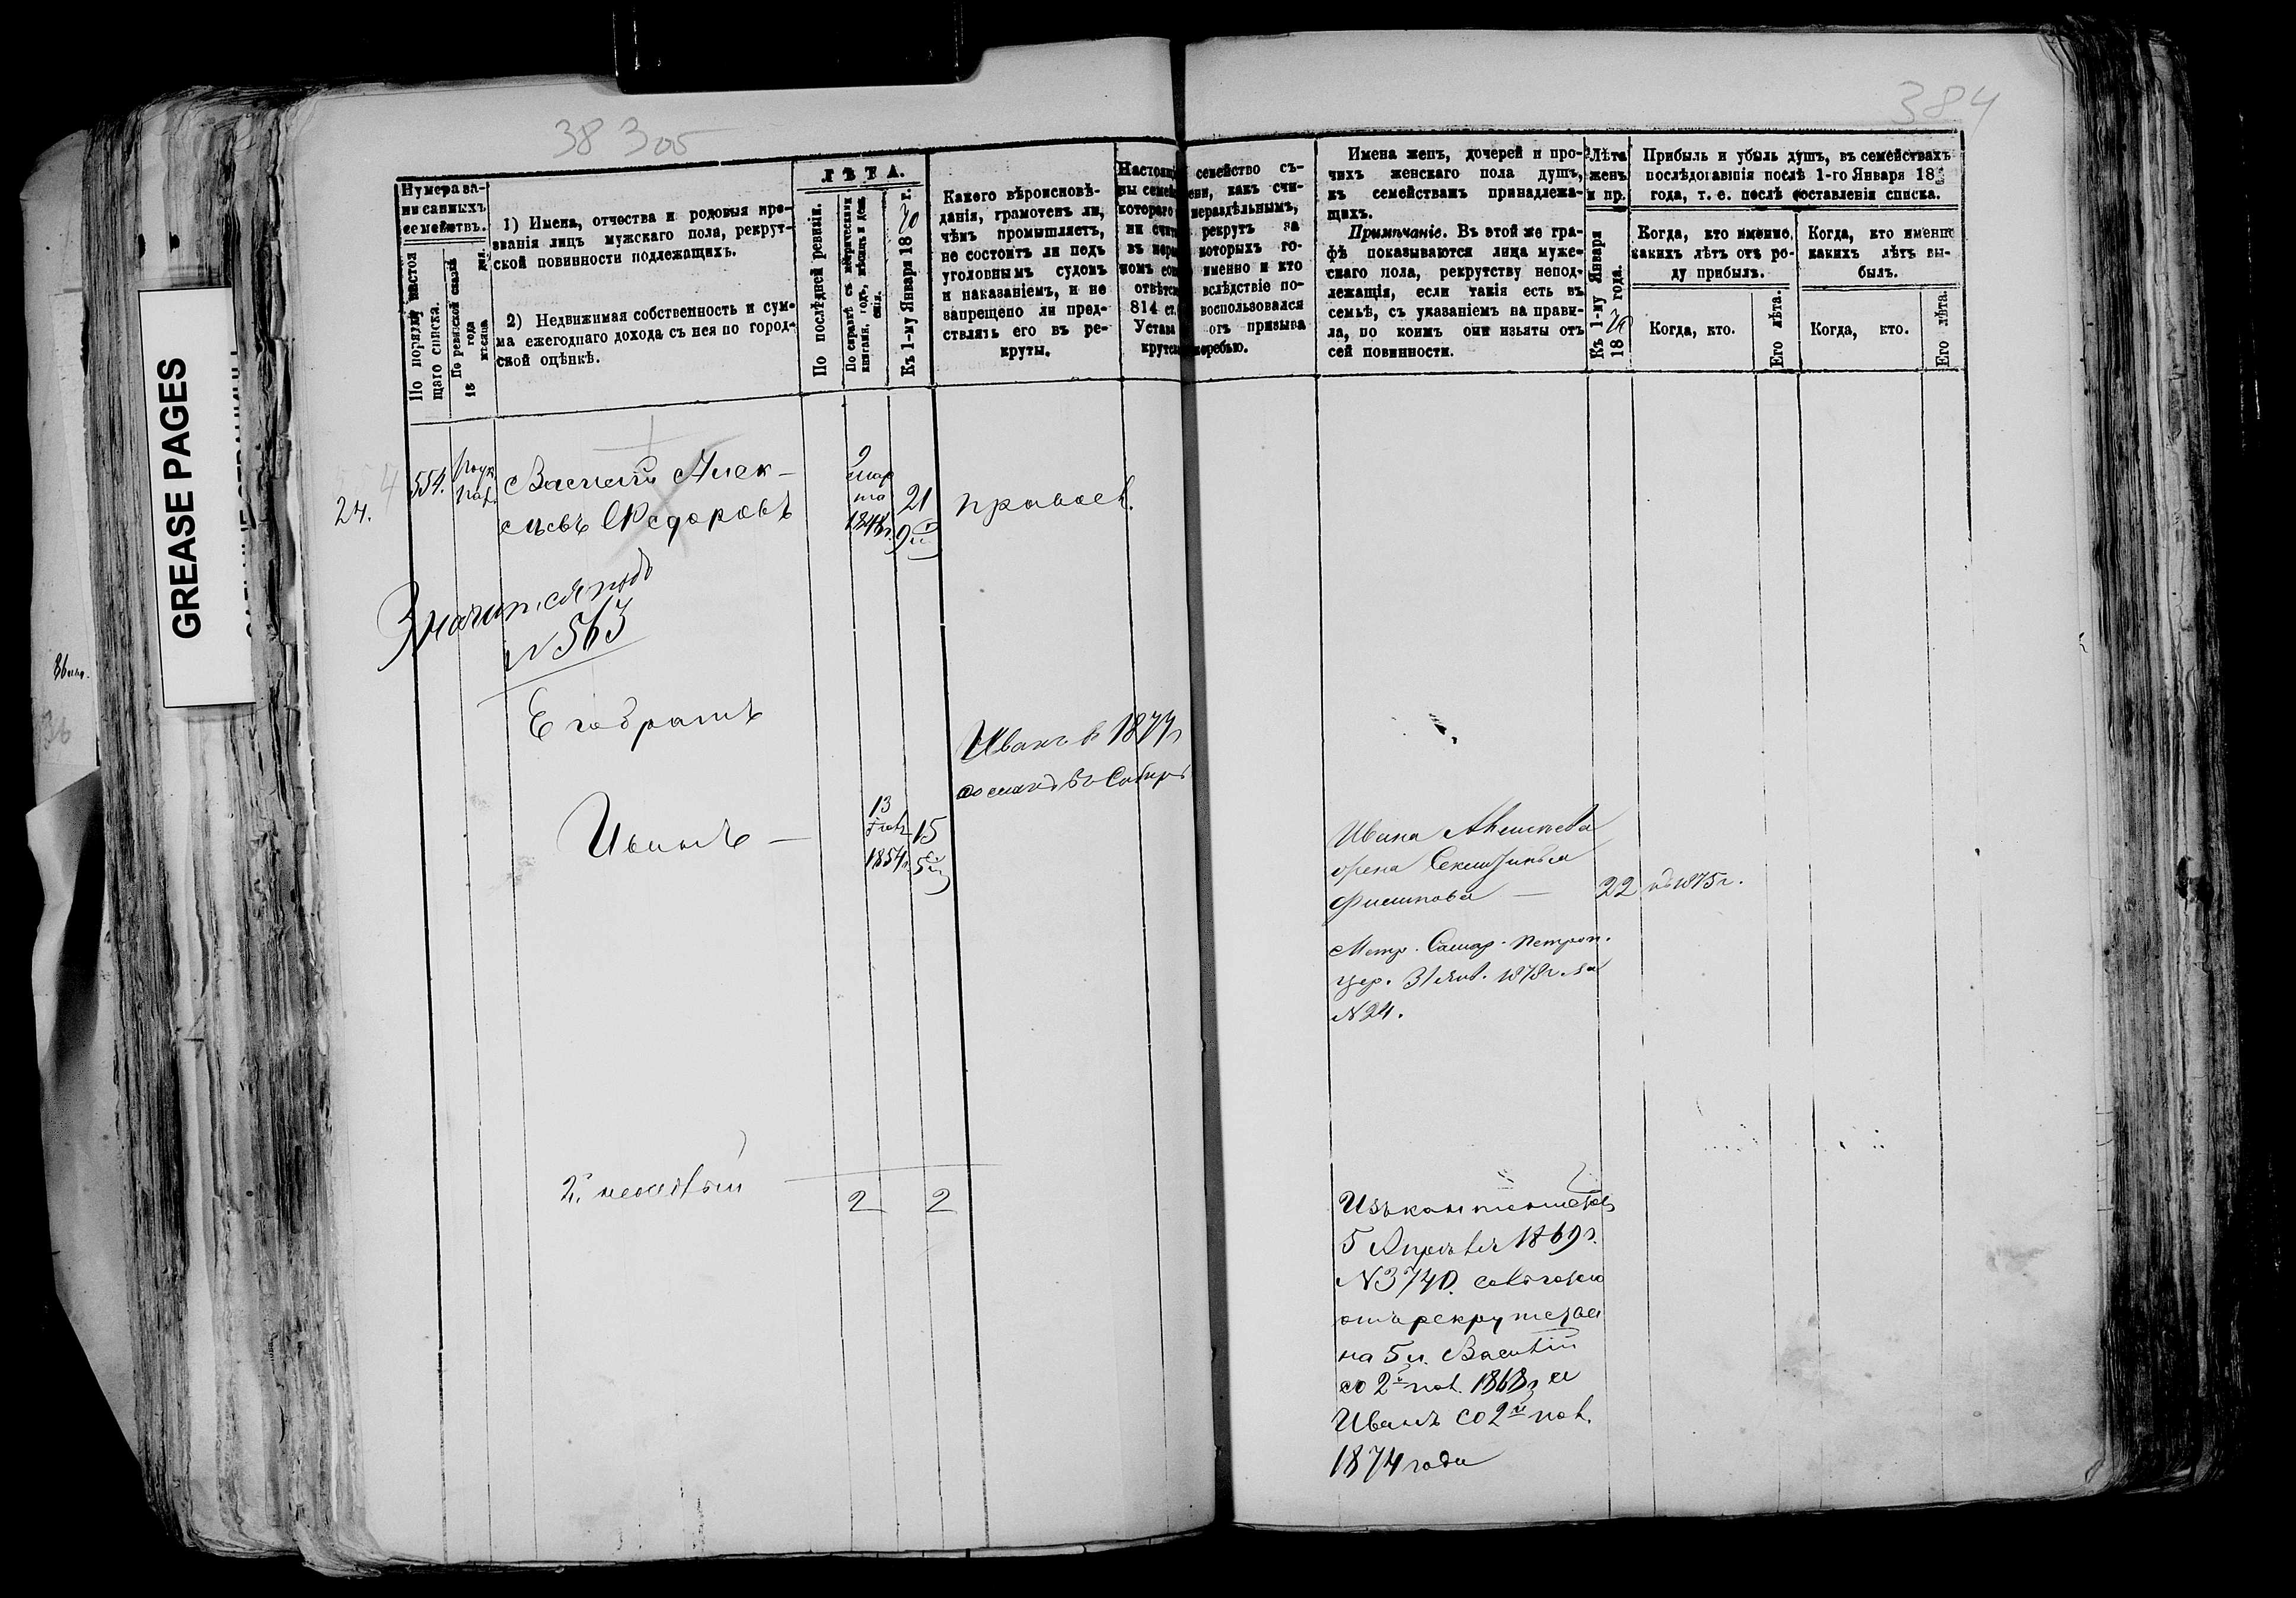 38 3об
384
GREASE PAGES
Нумера за-
писанныхъ
семействъ.
По порядку настоя
щаго списка.
По ревизской сказкѣ
18 года
мѣсяца дня.
1) Имена, отчества и родовыя про-
званія лицъ мужскаго пола, рекрут-
ской повинности подлежащихъ.
2) Недвижимая собственность и сум-
ма ежегоднаго дохода съ нея по город-
ской оцѣнкѣ.
ЛѢТА.
По послѣдней ревизіи.
По справкѣ съ метрическими
книгами, годъ, мѣсяцъ и день
Къ 1-му Января 1870 г.
Какого вѣроисновѣ-
данія, грамотенъ ли,
чѣмъ промышляетъ,
не состоитъ ли подъ
уголовнымъ судомъ
и наказаніемъ, и не
запрещено ли пред-
ставлять его въ ре-
круты.
семейство съ-
как счи-
нераздѣльнымъ,
рекрутъ за
которыхъ го-
именно и кто
вслѣдствіе по-
воспользовался
отъ призыва
жеребью.
Имена женъ, дочерей и про-
чихъ женскаго пола душъ,
къ семействамъ принадлежа-
щихъ.
Примѣчаніе. Въ этой же гра-
фѣ показываются лица муже-
скаго пола, рекрутству непод-
лежащія, если такія есть въ
семьѣ, съ указаніемъ на прави-
ла, по коимъ они изъяты отъ
сей повинности.
Лѣта
женъ
и пр.
Къ 1-му Января
1870 года.
Прибыль и убыль душъ, въ семействахъ
послѣдовавшія послѣ 1-го Января 18
года, т. е. послѣ составленія списка.
Когда, кто именно,
какихъ лѣтъ отъ ро-
ду прибылъ.
Когда, кто именно
какихъ лѣтъ вы-
былъ.
Когда, кто.
Его лѣта.
Когда, кто.
Его лѣта.
24.
554.
Василій Алек-
сѣевъ Ѳедоровъ
9
мар
та
1848г.
21
9 м
правосл.
Значится подъ
N 563
Его братъ
Иванъ в 1877г
сосланъ въ Сибирь
Иванъ —
13
1854г.
15
5 м
Ивана Алексѣева
жена Секлитинья
Филипова —
22
къ 1875 г.
Метр. Самар. Петроп.
цер. 31 янв. 1878г. за
N 24.
2 2
5 Апрѣля 1869г.
N 3740. свободно
отъ рекрутства
на 5 л. Василій
со 2й пол. 1868г и
Иванъ со 2й пол.
1874 года